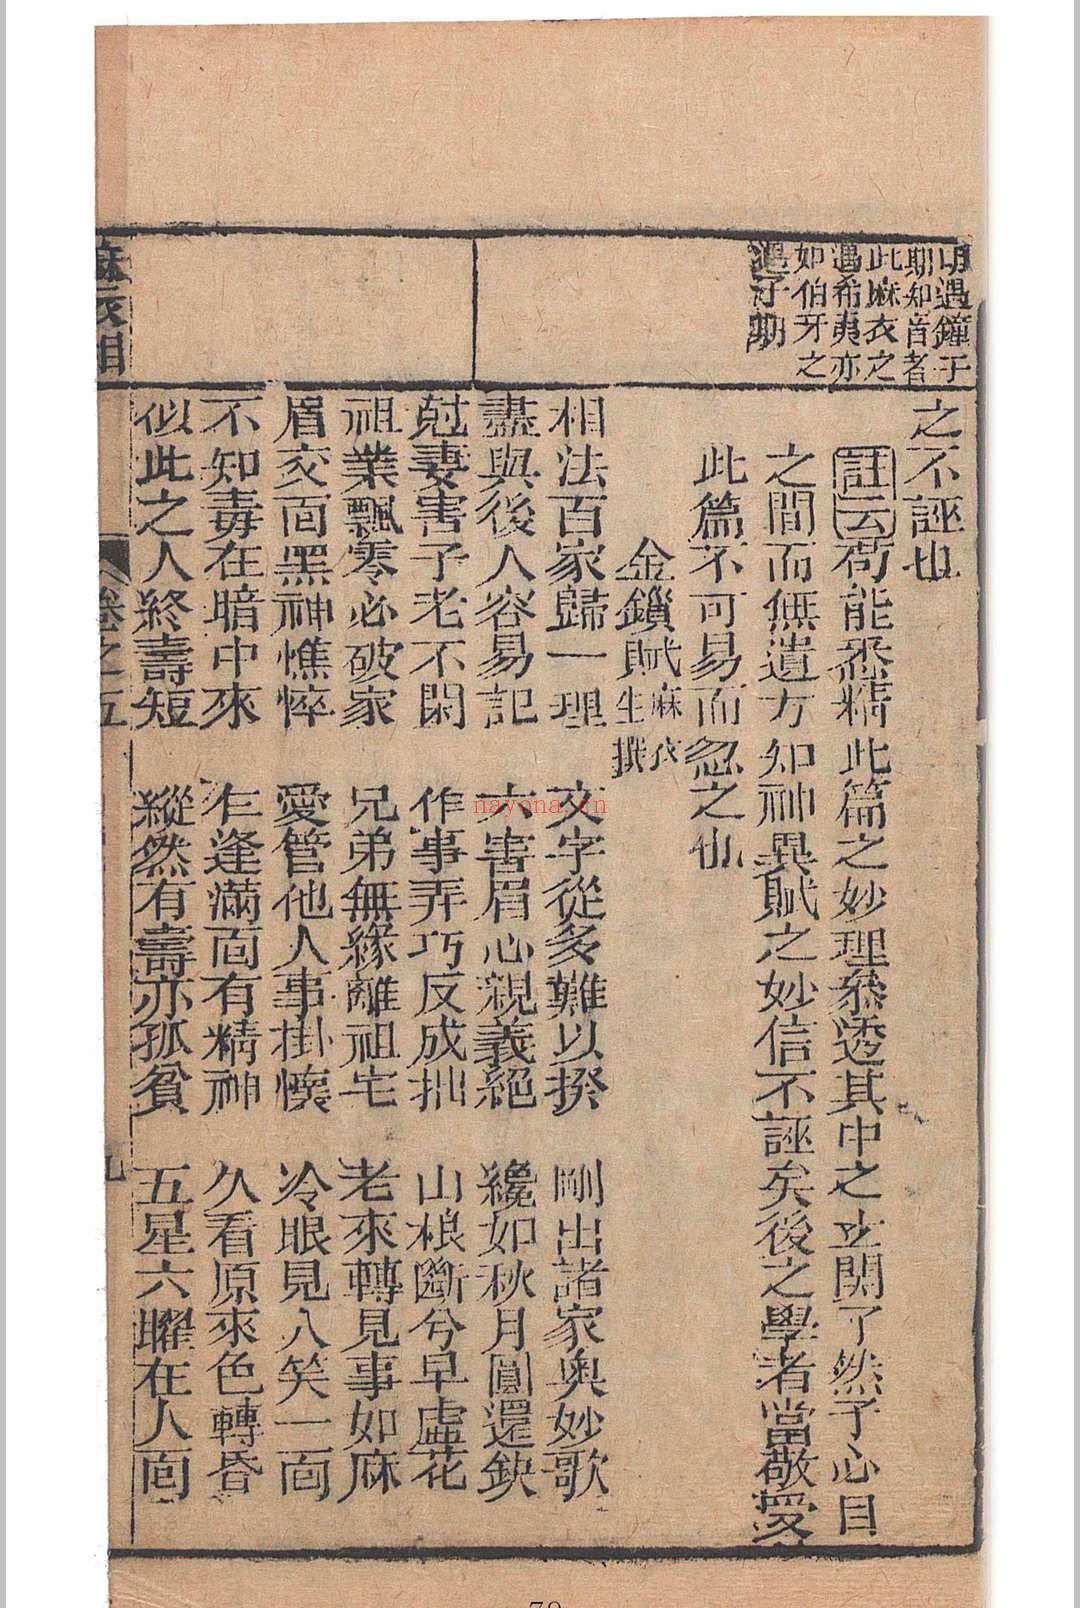 明遇鍾子
期知音者
此麻衣之
遇希夷亦
如伯牙之
遇子期
之不誣也
註云苟能悉精此篇之妙理叅透其中之玄関了然于心目
之間而無遺方知神異賦之妙信不誣矣後之學者當敬愛
此篇不可易而忽之也
金鎖賦麻衣生撰
相法百家歸一理 文字從多難以揆 刪出諸家奥妙歌
盡與後人容易記 六害眉心親義絕 纔如秋月圓還缺
尅妻害子老不閑 作事弄巧反成拙 山根斷兮早虛花
祖業飄零必破家 兄弟無緣離祖宅 老來轉見事如麻
眉交面黑神憔悴 愛管他人事掛懷 冷眼見人笑一面
不知毒在暗中來 乍逢滿面有精神 久看原來色轉昏
似此之人終壽短 縱然有壽亦孤貧 五星六曜在人面
麻衣相
卷之五
九
nayona.cn